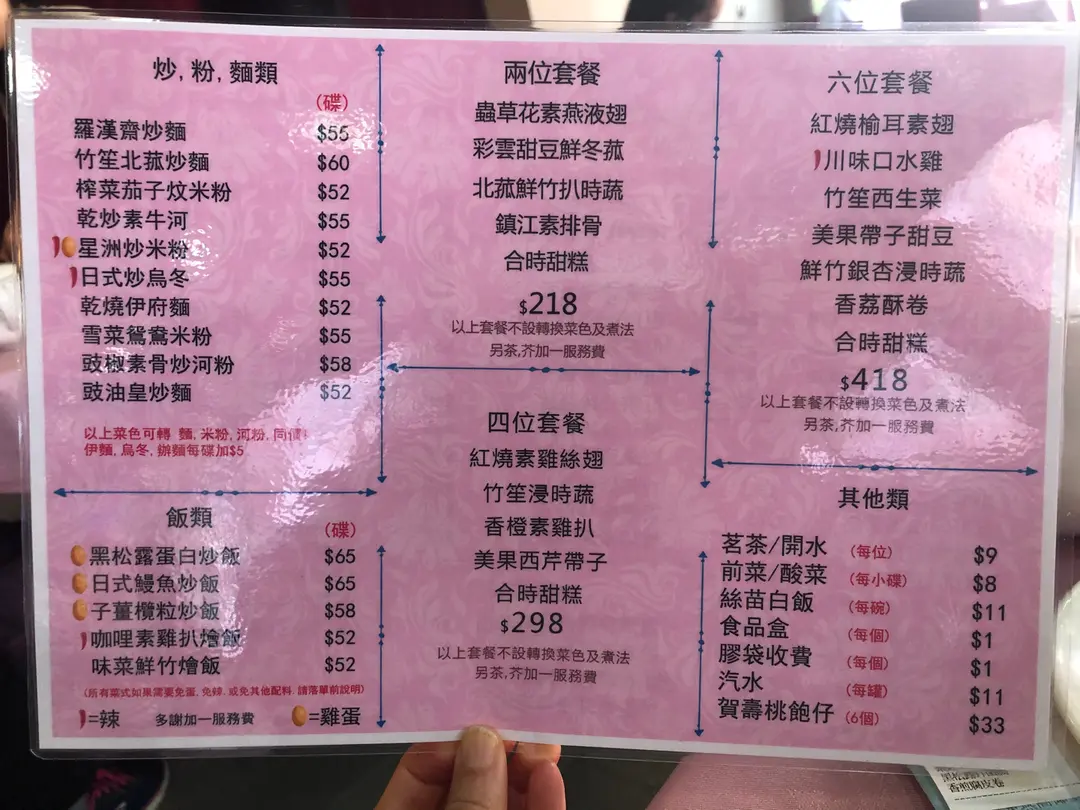 炒, 粉, 麵類
(碟)
羅漢齋炒麵 $55
竹笙北菰炒麵 $60
榨菜茄子炆米粉 $52
乾炒素牛河 $55
星洲炒米粉 $52
日式炒烏冬 $55
乾燒伊府麵 $52
雪菜鴛鴦米粉 $55
豉椒素骨炒河粉 $58
豉油皇炒麵 $52
以上菜色可轉 麵, 米粉, 河粉, 同價
伊麵, 烏冬, 辦麵每碟加$5
飯類
(碟)
黑松露蛋白炒飯 $65
日式鰻魚炒飯 $65
子薑欖粒炒飯 $58
咖哩素雞扒燴飯 $52
味菜鮮竹燴飯 $52
(所有菜式如果需要免蛋, 免辣, 或免其他配料, 請落單前說明)
=辣 多謝加一服務費 =雞蛋
兩位套餐
蟲草花素燕液翅
彩雲甜豆鮮冬菰
北菰鮮竹扒時蔬
鎮江素排骨
合時甜糕
$218
以上套餐不設轉換菜色及煮法
另茶,芥加一服務費
四位套餐
紅燒素雞絲翅
竹笙浸時蔬
香橙素雞扒
美果西芹帶子
合時甜糕
$298
以上套餐不設轉換菜色及煮法
另茶,芥加一服務費
六位套餐
紅燒榆耳素翅
川味口水雞
竹笙西生菜
美果帶子甜豆
鮮竹銀杏浸時蔬
香荔酥卷
合時甜糕
$418
以上套餐不設轉換菜色及煮法
另茶,芥加一服務費
其他類
茗茶/開水 (每位) $9
前菜/酸菜 (每小碟) $8
絲苗白飯 (每碗) $11
食品盒 (每個) $1
膠袋收費 (每個) $1
汽水 (每罐) $11
賀壽桃飽仔 (6個) $33
香煎腐皮卷